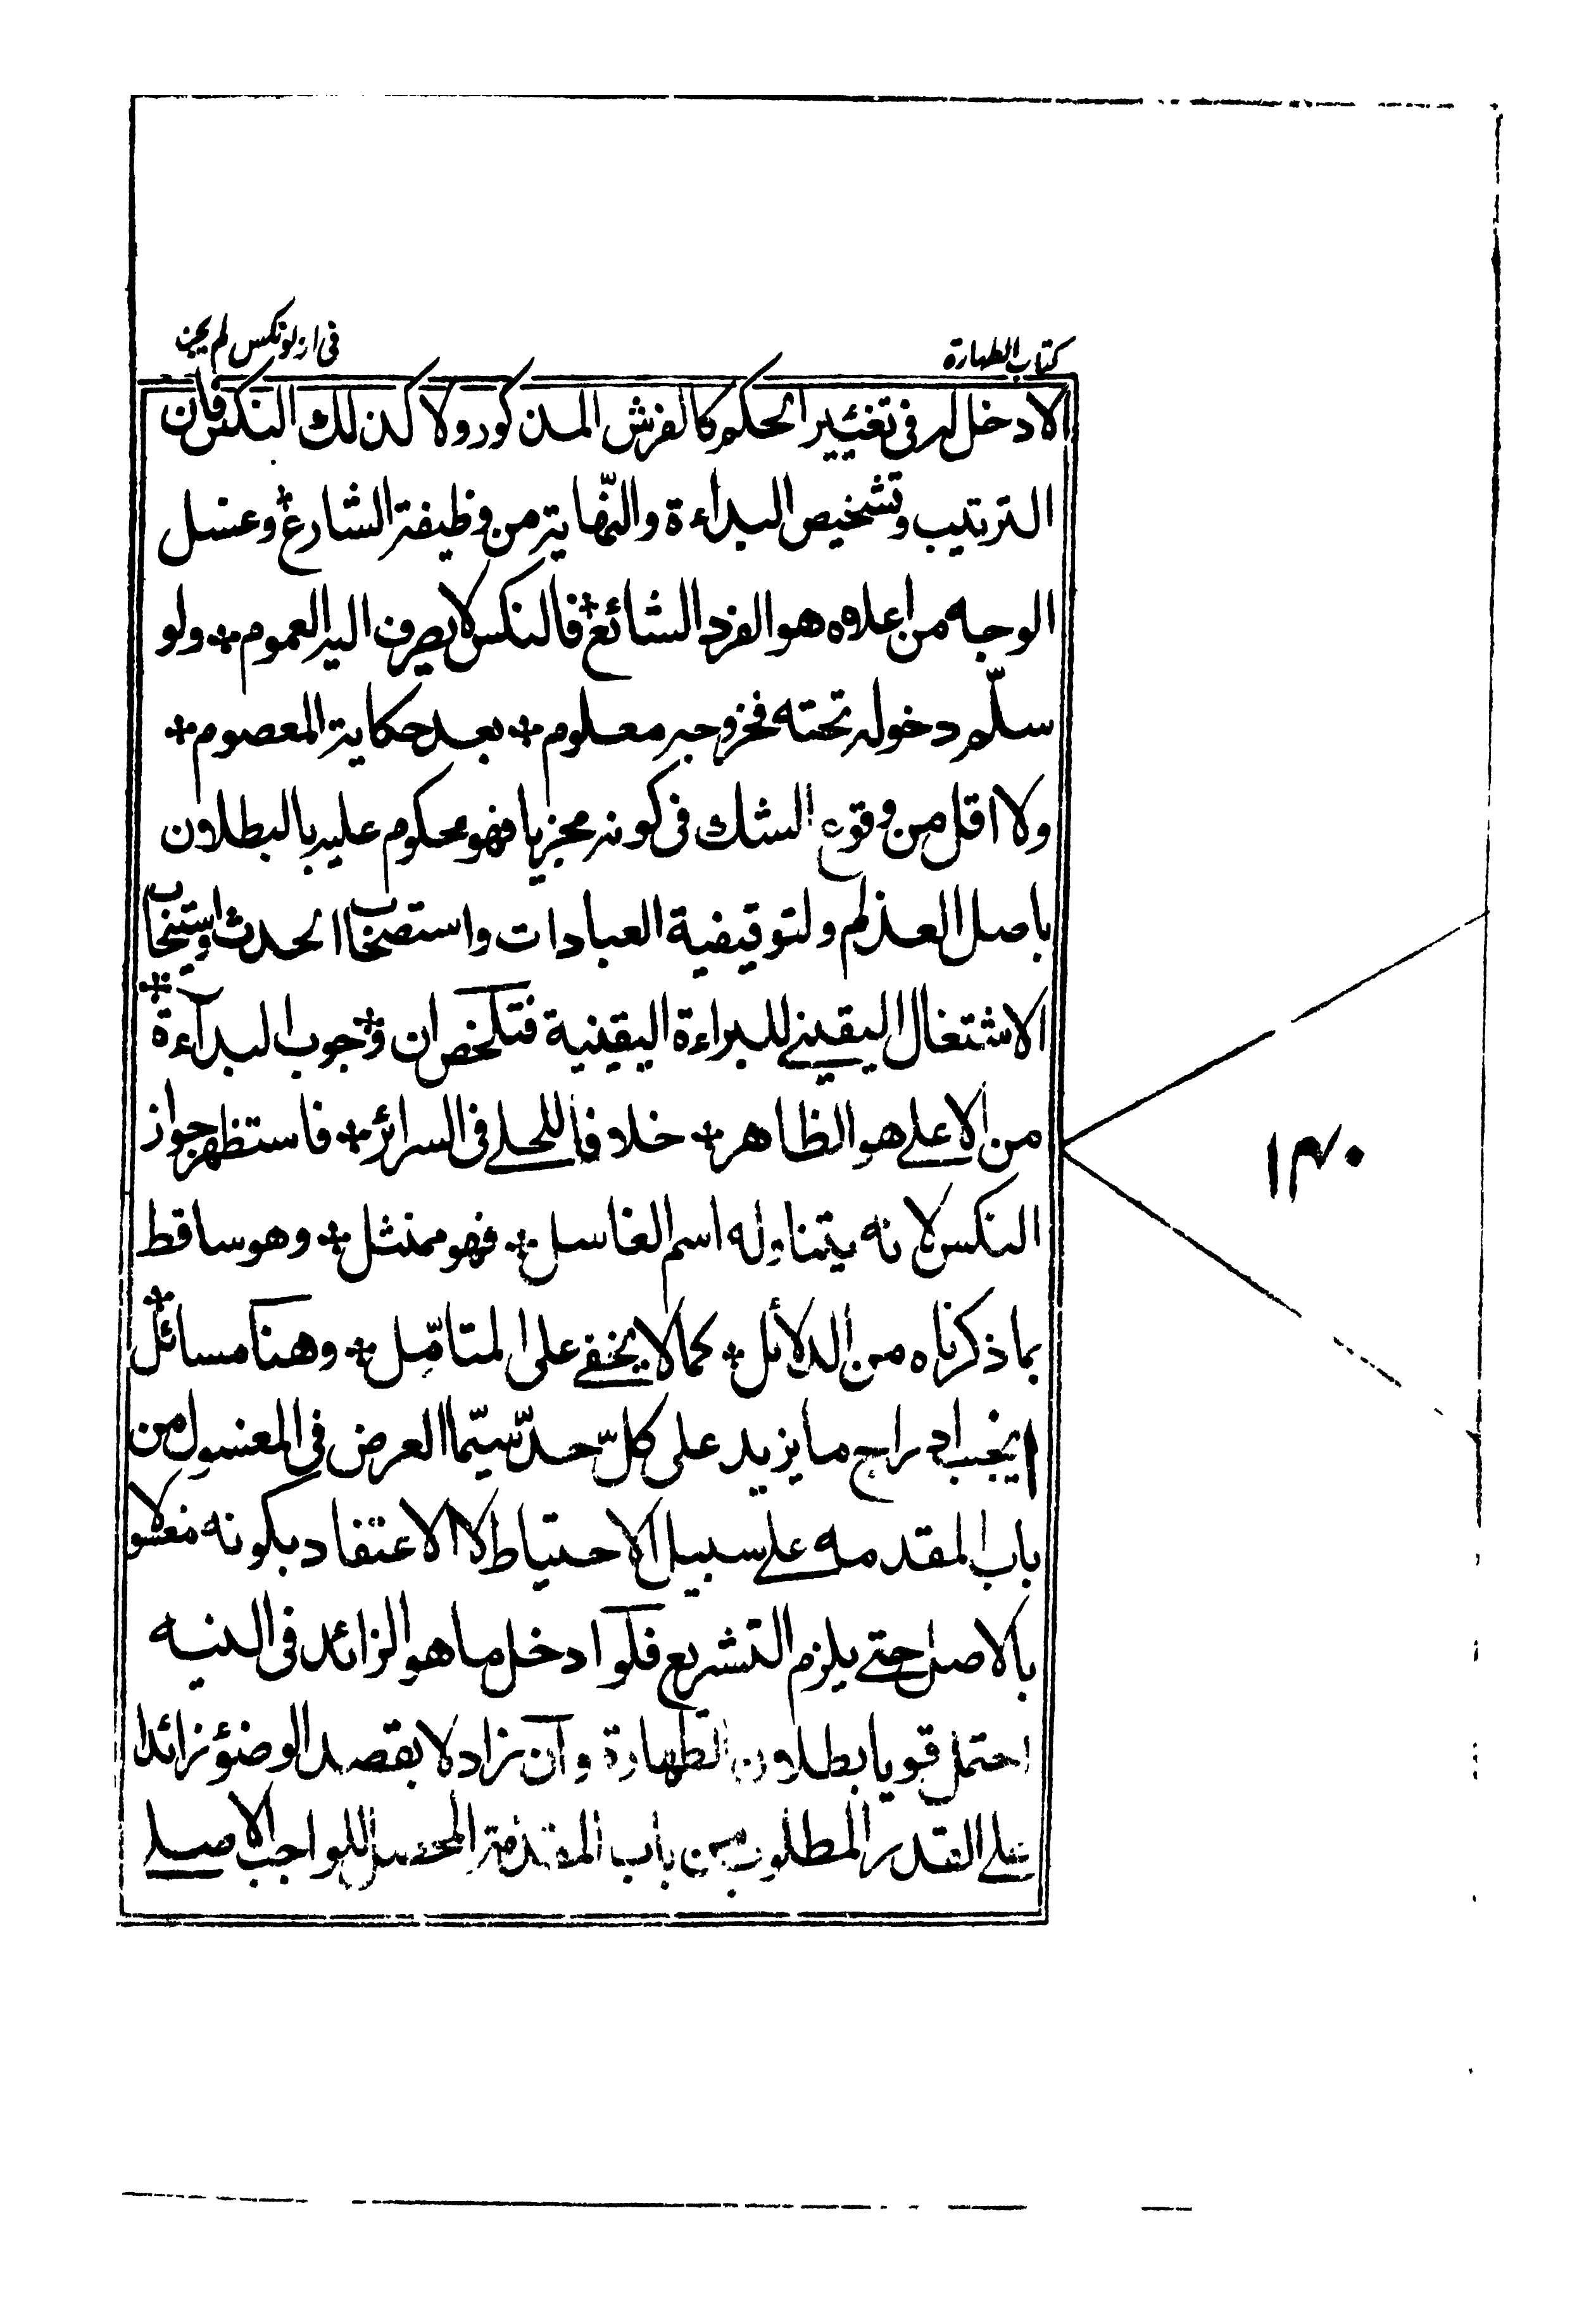 كتاب الطهارة
فى انه لو نكس لم يجز
لا دخل له فى تغيير الحكم كالفرش المذكور ولا كذلك النكس فان
الترتيب وتشخيص البداءة والنّهاية من وظيفة الشارع؛ وغسل
الوجه من اعلاه هو الفرد الشائع؛ فالنكس لا يصرف اليه العموم؛ ولو
سلّم دخوله تحته فخروجه معلوم؛ بعد حكاية المعصوم؛
ولا اقل من وقوع الشك فى كونه مجزيا فهو محكوم عليه بالبطلان
باصل العدم ولتوقيفية العبادات واستصحاب الحدث واستصحاب
الاشتغال اليقينے للبراءة اليقينية فتلخص ان وجوب البدآءة؛
من الاعلے هو الظاهر؛ خلافا للحلے فى السرائر؛ فاستظهر جواز
النكس لانه يتناوله اسم الغاسل؛ فهو ممتثل؛ وهو ساقط
بما ذكرناه من الدلائل؛ كما لا يخفے على المتامّل؛ وهنا مسائل؛
ا يجب ادراج ما يزيد على كلّ حدّ سيّما العرض فى المغسول من
باب المقدمه علے سبيل الاحتياط لا الاعتقاد بكونه مغسولا
بالاصل حتے يلزم التشريع فلو ادخل ما هو الزائد فى النيه
احتمل قويا بطلان الطهارة وان زاد لا بقصد الوضوء زائدا
علے القدر المطلوب من باب المقدمة المحصل للواجب الاصلے
١٣٠